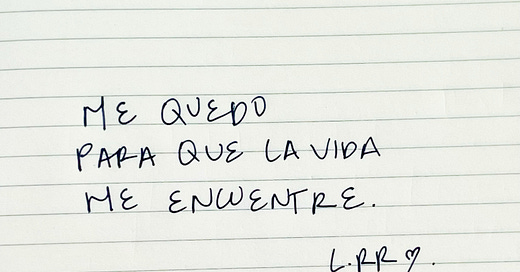 ME QUEDO
PARA QUE LA VIDA
ME ENCUENTRE.
L.RR ♡.